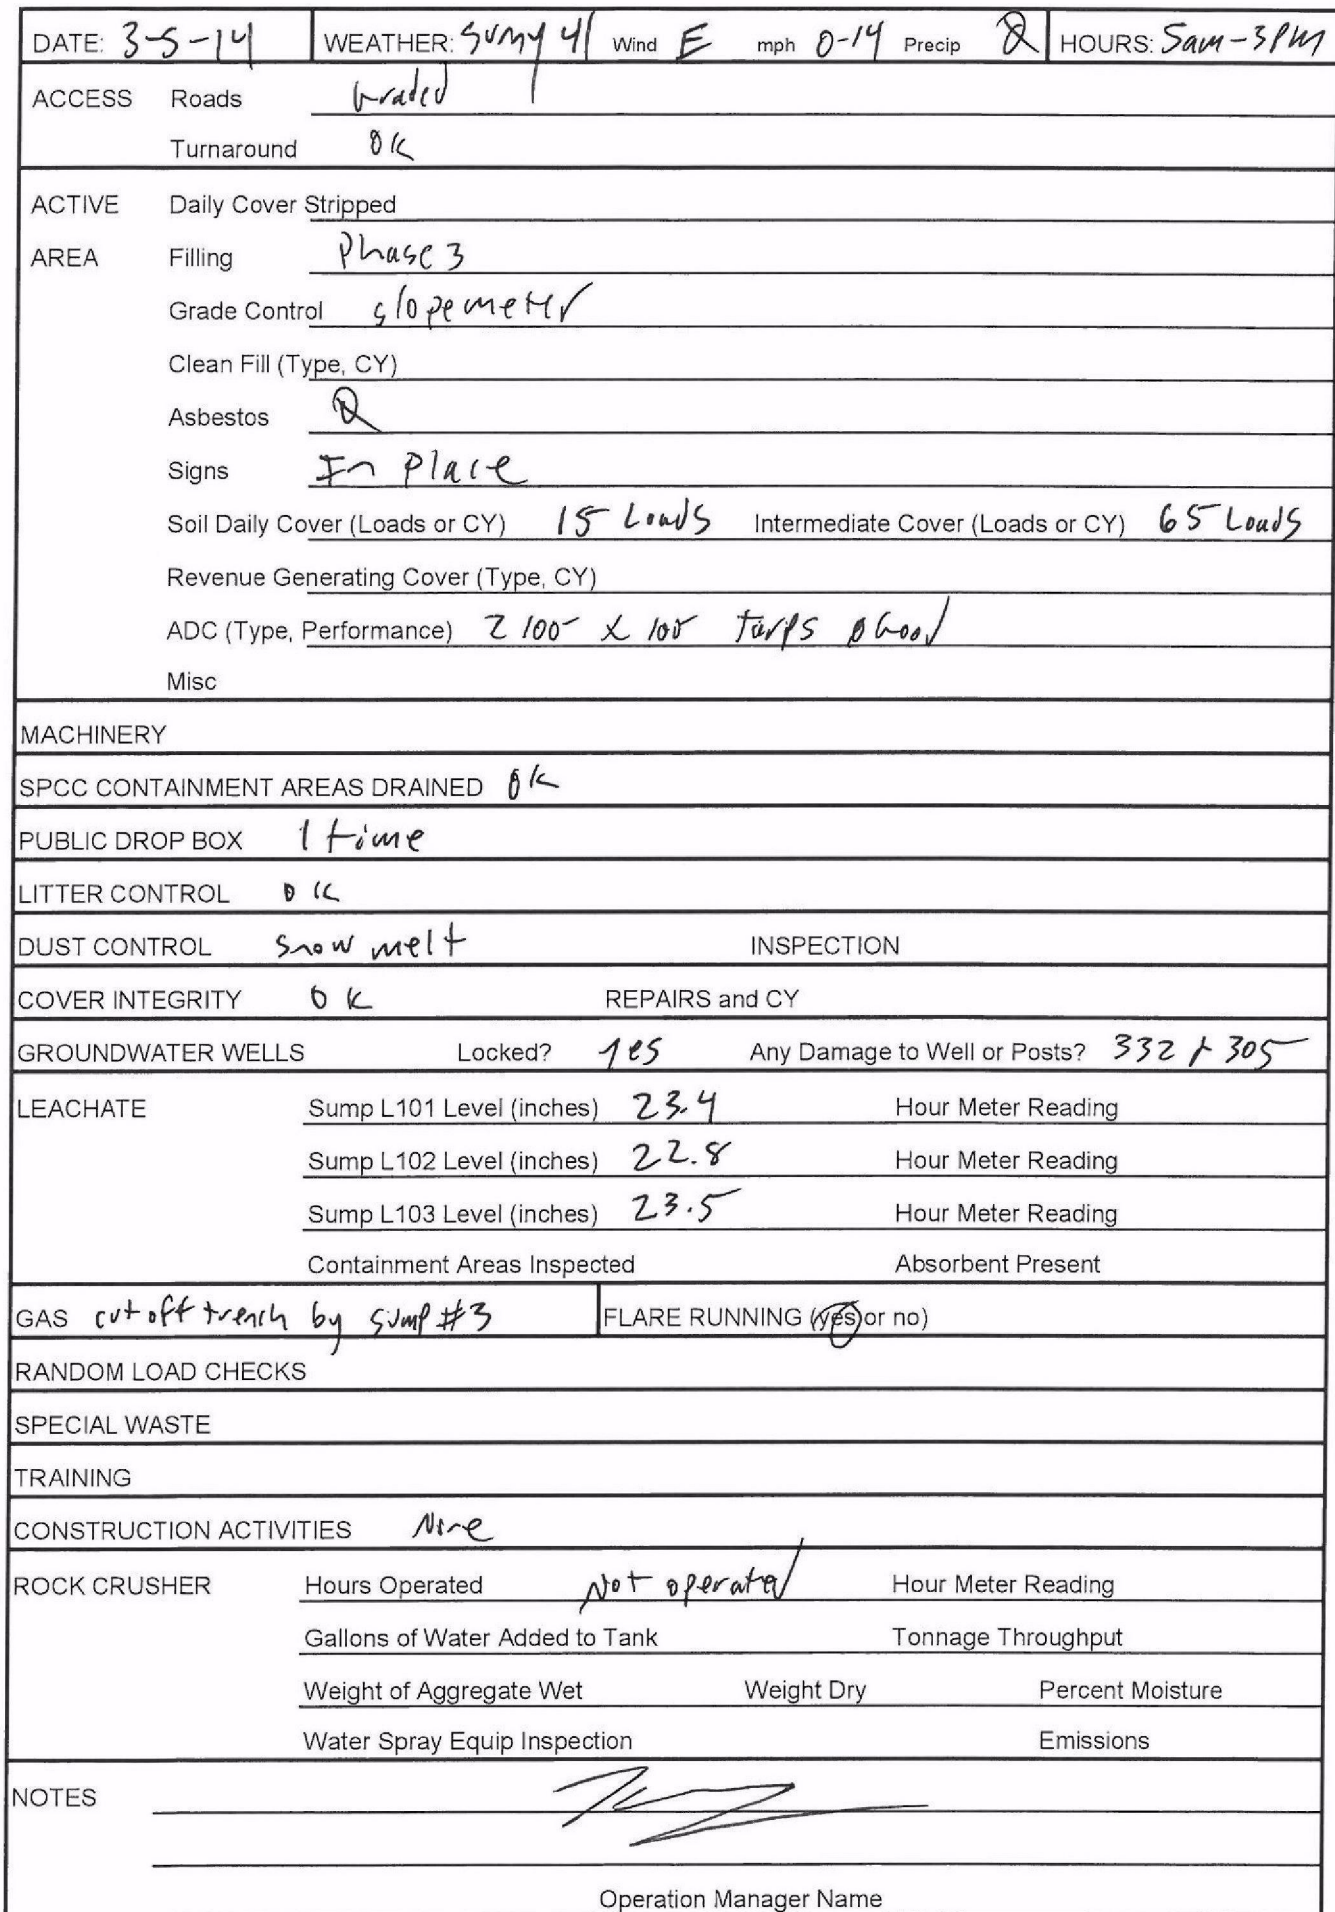 DATE: 3-5-14 WEATHER: Sunny 41 Wind E mph 0-14 Precip Ø HOURS: 5am-3PM
ACCESS Roads Graded
Turnaround OK
ACTIVE Daily Cover Stripped
AREA Filling Phase 3
Grade Control slopemeter
Clean Fill (Type, CY)
Asbestos Ø
Signs In Place
Soil Daily Cover (Loads or CY) 15 Loads Intermediate Cover (Loads or CY) 65 Loads
Revenue Generating Cover (Type, CY)
ADC (Type, Performance) 2 100 x 100 tarps Good
Misc
MACHINERY
SPCC CONTAINMENT AREAS DRAINED OK
PUBLIC DROP BOX 1 time
LITTER CONTROL OK
DUST CONTROL Snow melt INSPECTION
COVER INTEGRITY OK REPAIRS and CY
GROUNDWATER WELLS Locked? yes Any Damage to Well or Posts? 332 + 305
LEACHATE Sump L101 Level (inches) 23.4 Hour Meter Reading
Sump L102 Level (inches) 22.8 Hour Meter Reading
Sump L103 Level (inches) 23.5 Hour Meter Reading
Containment Areas Inspected Absorbent Present
GAS cut off trench by sump #3 FLARE RUNNING (yes or no)
RANDOM LOAD CHECKS
SPECIAL WASTE
TRAINING
CONSTRUCTION ACTIVITIES None
ROCK CRUSHER Hours Operated Not operated Hour Meter Reading
Gallons of Water Added to Tank Tonnage Throughput
Weight of Aggregate Wet Weight Dry Percent Moisture
Water Spray Equip Inspection Emissions
NOTES
Operation Manager Name